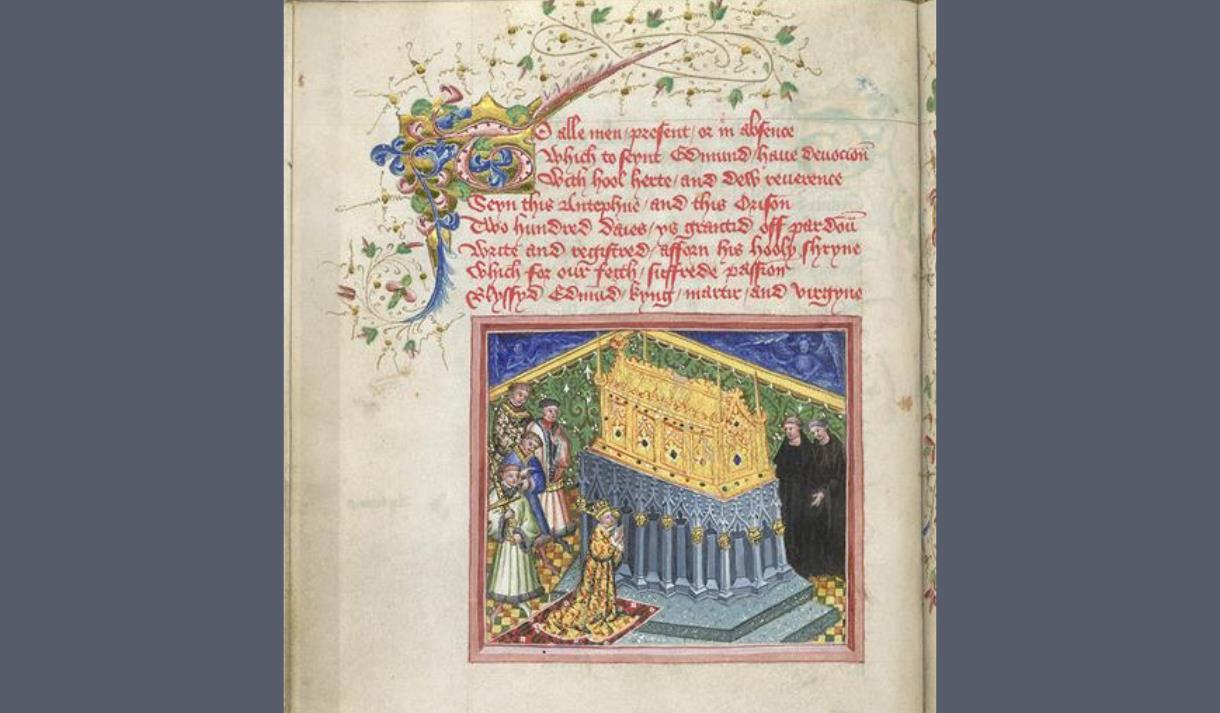 To alle men / present / or in absence
Which to seynt Edmund / haue deuocion
With hool herte / and dew reuerence
Seyn this Antephne / and this Orison
Two hundred daies / ys grantid off pardoun
Write and registred / afforn his hooly shryne
Which for our feith / suffrede passion
Blyssyd Edmund / kyng / martir / and virgyne